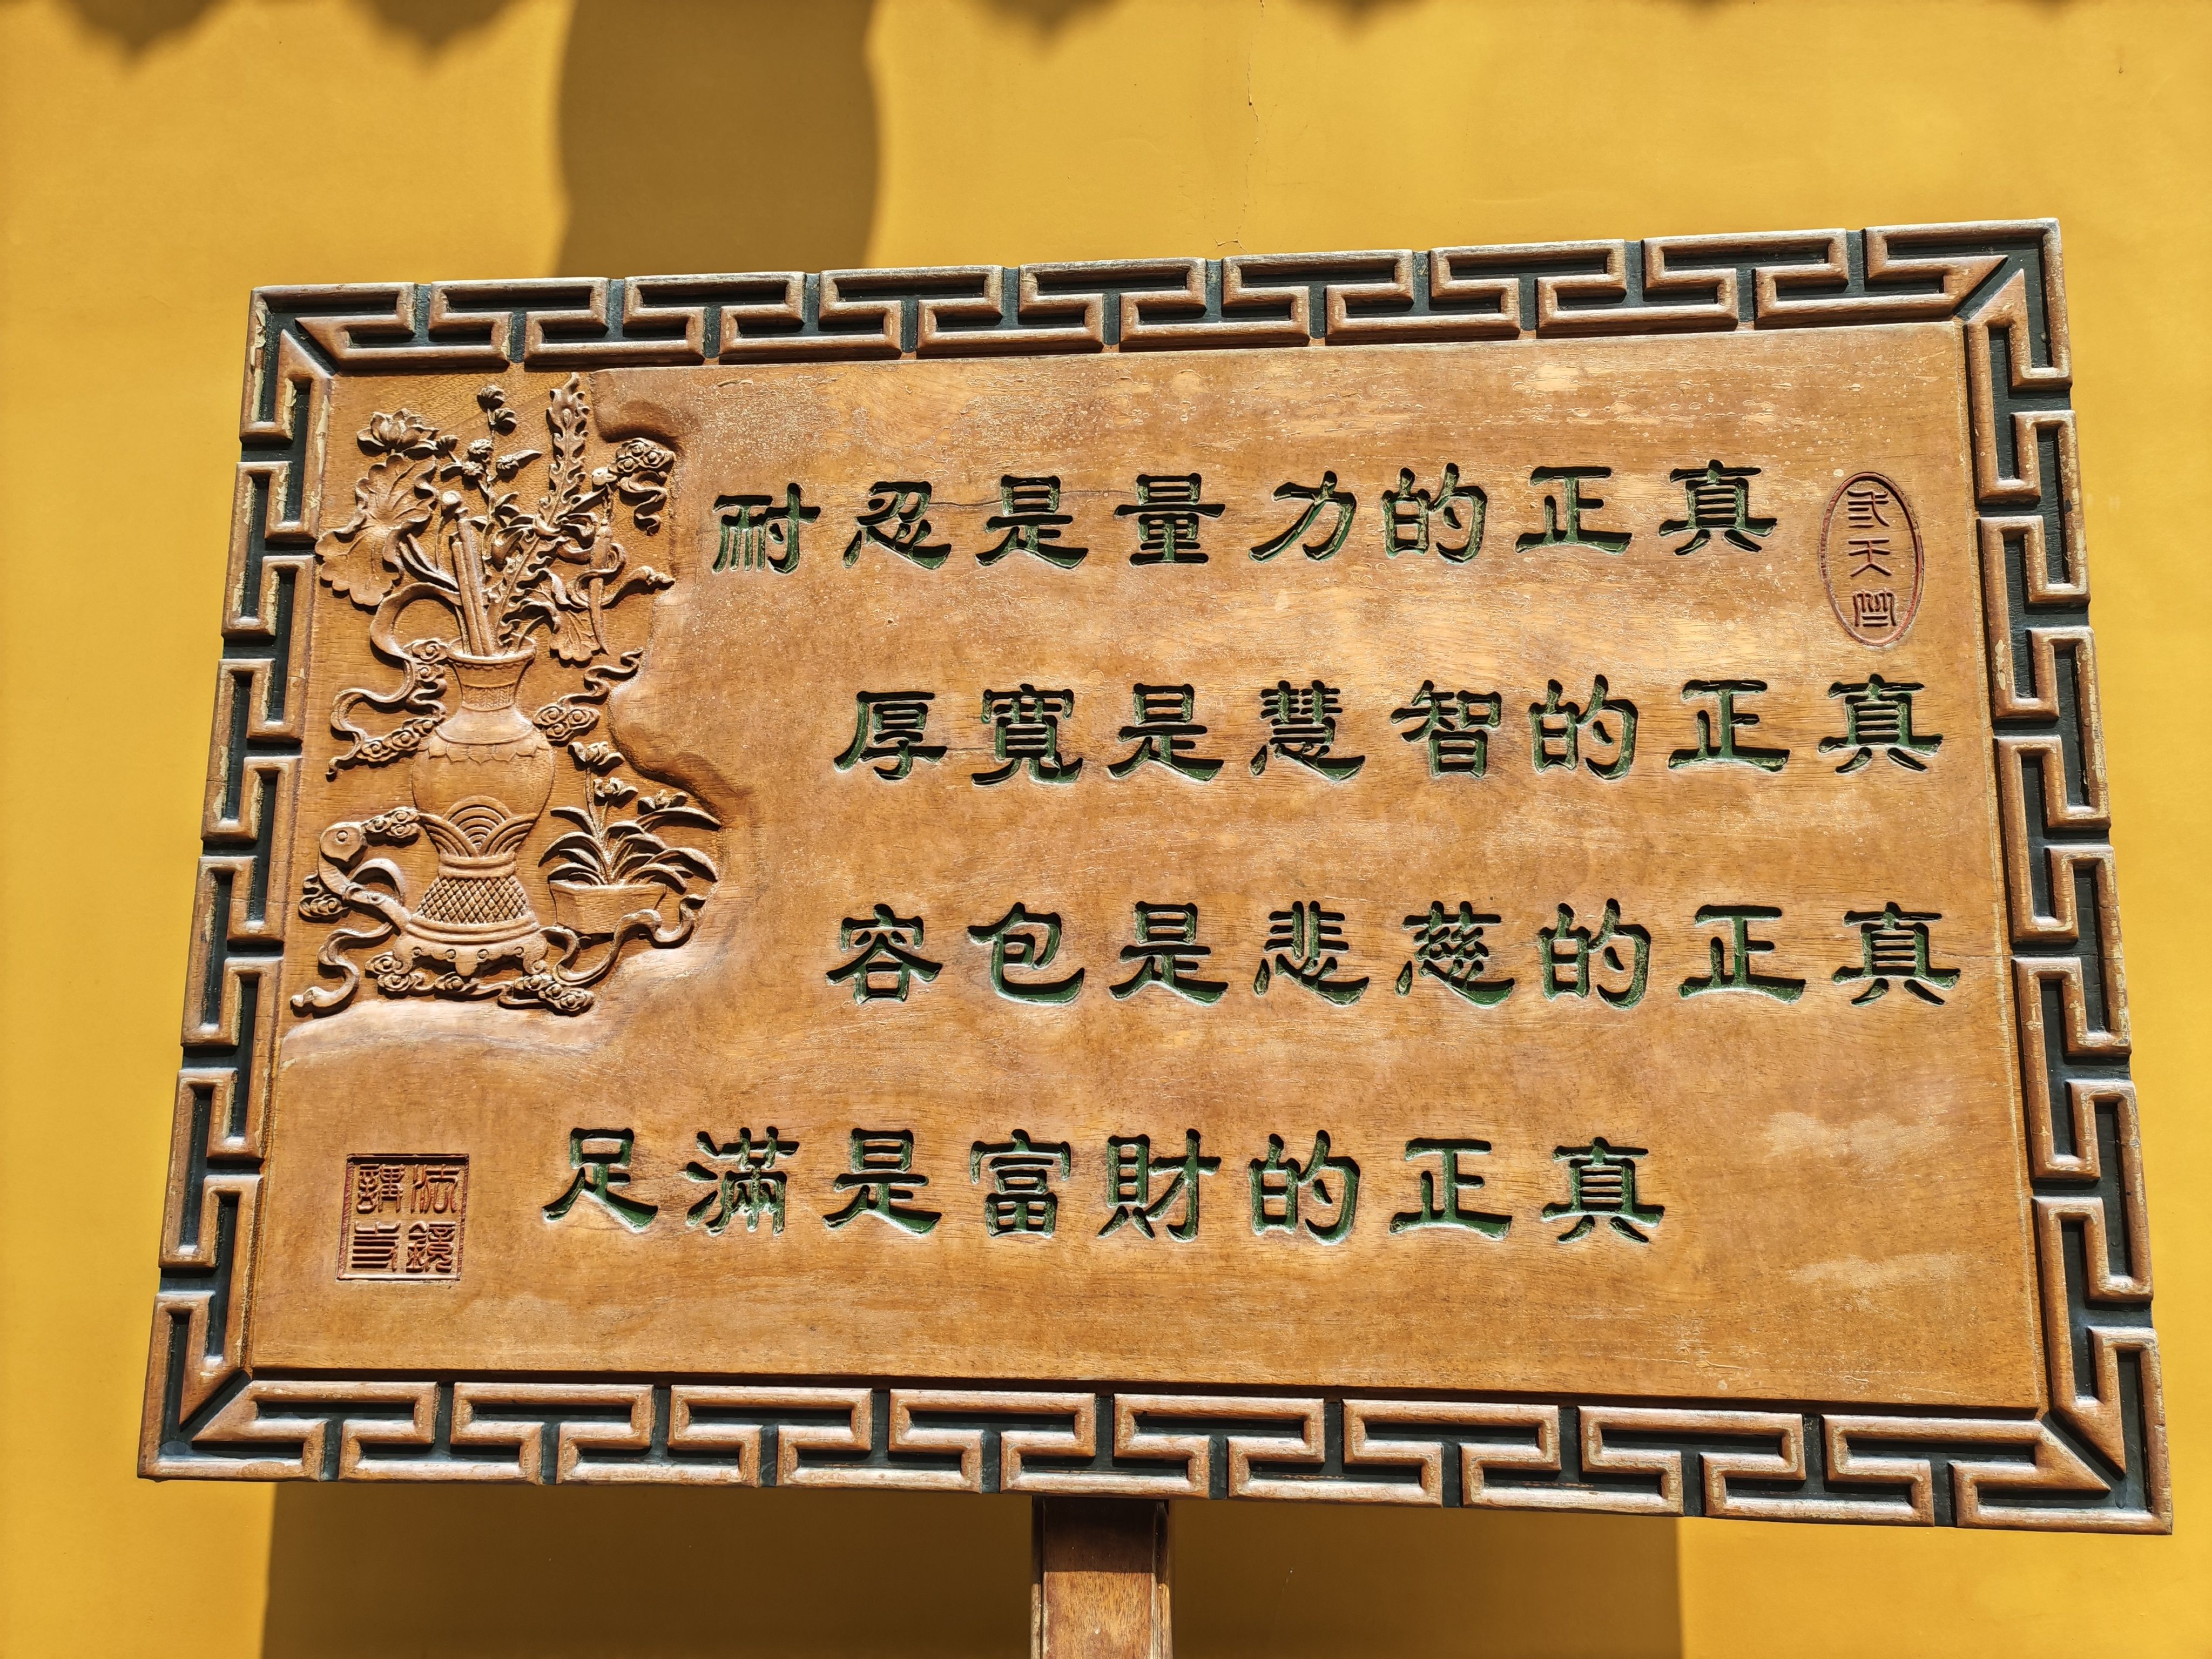 真正的力量是忍耐
真正的智慧是寬厚
真正的慈悲是包容
真正的財富是滿足
法鏡講寺